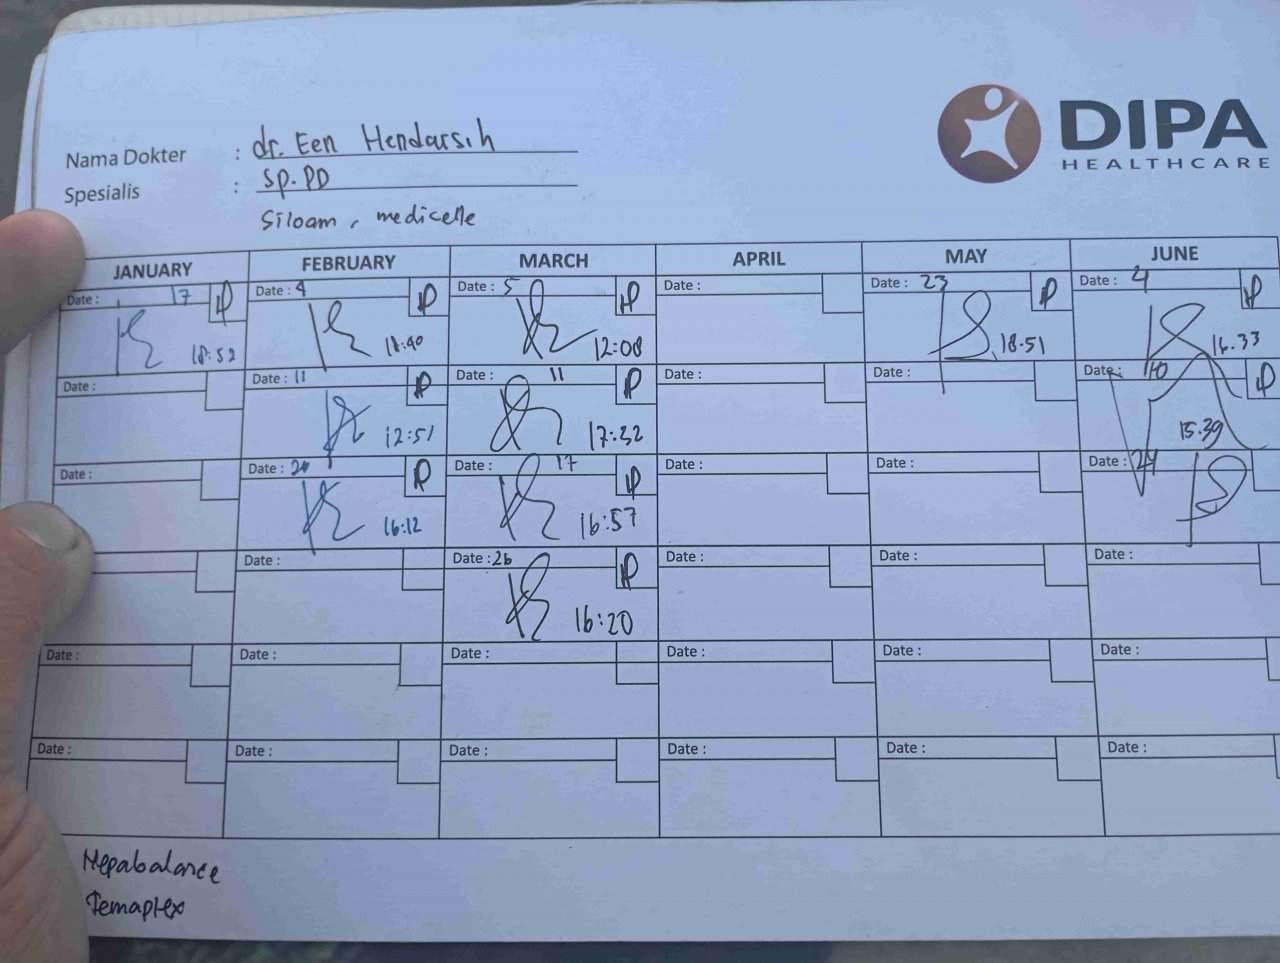 DIPA
HEALTHCARE
Nama Dokter : dr. Een Hendarsih
Spesialis : Sp.PD
Siloam, medicelle
JANUARY FEBRUARY MARCH APRIL MAY JUNE
Date : 17 Date : 4 Date : 5 Date : Date : 23 Date : 4
18:52 18:40 12:08 18.51 16.33
Date : Date : 11 Date : 11 Date : Date : Date : 10
12:51 17:32 15.39
Date : Date : 20 Date : 17 Date : Date : Date : 24
16:12 16:57
Date : Date : 26 Date : Date : Date :
16:20
Date : Date : Date : Date : Date : Date :
Date : Date : Date : Date : Date : Date :
Hepabalance
Temaplex